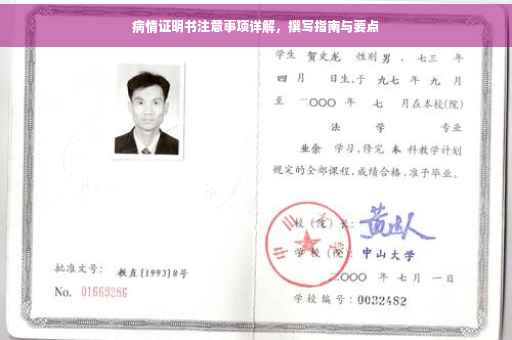 病情证明书注意事项详解，撰写指南与要点
学生 贺文龙 性别 男 、七三 年
四 月 日生,于 九七 年 九 月
至 二〇〇〇 年 七 月在本校(院)
法 学 专业
业余 学习,修完 本 科教学计划
规定的全部课程,成绩合格,准予毕业。
校(院)长:
学校(院): 中山大学
二〇〇〇 年 七 月 一 日
学校编号: 0032482
批准文号: 教直(1993)8号
No. 01669286